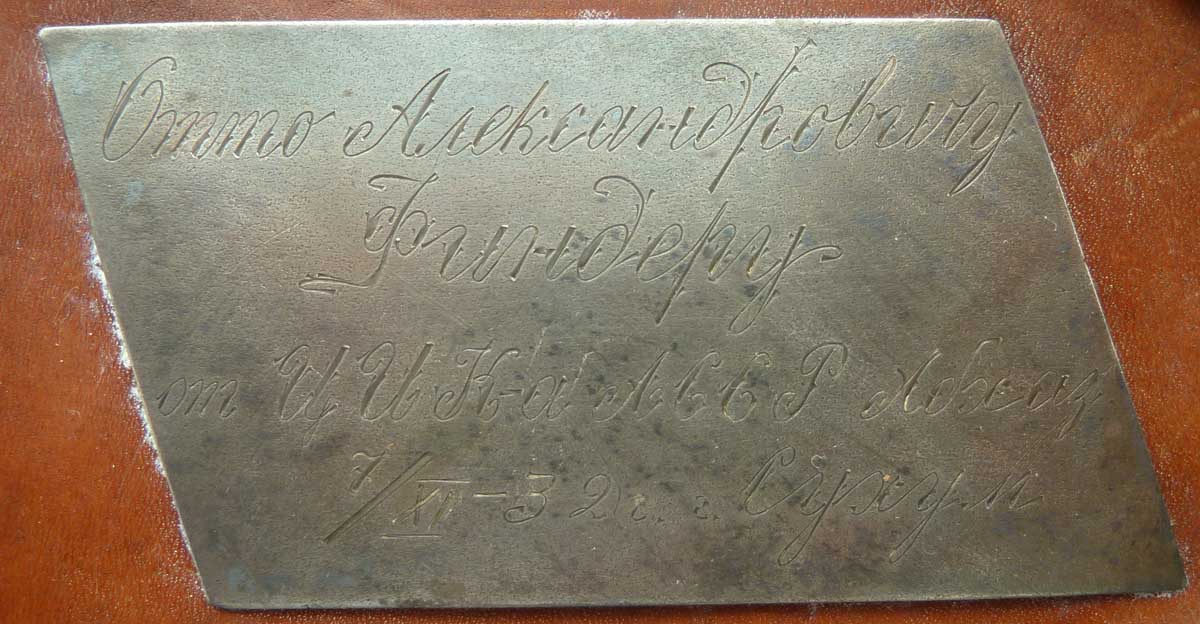 Отто Александровичу
Финдеру
от ЦИК-а АССР Абхаз.
7/XI-32 г. г. Сухум